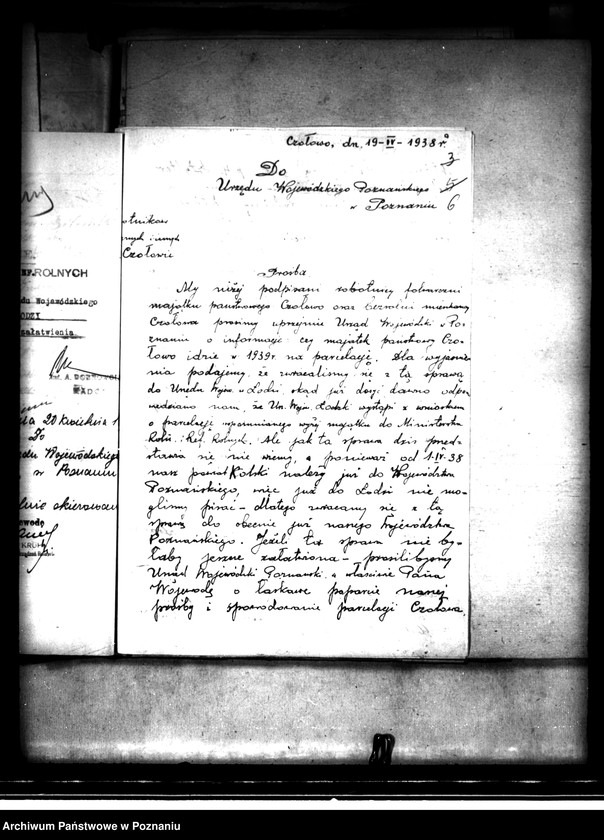 Czołowo, dn. 19-IV-1938 r.
3
Do
Urzędu Wojewódzkiego Poznańskiego
5
w Poznaniu 6
otników
Czołowie
Prośba
My niżej podpisani robotnicy folwarczni
majątku państwowego Czołowo oraz bezrolni mieszkańcy
Czołowa prosimy uprzejmie Urząd Wojewódzki w Po-
znaniu o informację czy majątek państwowy Czo-
łowo idzie w 1939 r. na parcelację. Dla wyjaśnie-
nia podajemy, że zwracaliśmy się z tą sprawą
do Urzędu Wojew. w Łodzi, skąd już dosyć dawno odpo-
wiedziano nam, że Urz. Wojew. Łódzki wystąpi z wnioskiem
o parcelację wspomnianego wyżej majątku do Ministerstwa
Roln. i Ref. Rolnych. Ale jak ta sprawa dziś przed-
stawia się nie wiemy, a ponieważ od 1-IV-38
nasz powiat Kolski należy już do Województwa
Poznańskiego, więc już do Łodzi nie mo-
gliśmy pisać - dlatego zwracamy się z tą
sprawą do obecnie już naszego Województwa
Poznańskiego. Jeżeli ta sprawa nie by-
łaby jeszcze załatwiona - prosilibyśmy
Urząd Wojewódzki Poznański, a właściwie Pana
Wojewodę o łaskawe poparcie naszej
prośby i spowodowanie parcelacji Czołowa.
EF. ROLNYCH
du Wojewódzkiego
ODZI
załatwienia.
20 kwietnia 1
Do
du Wojewódzkiego
w Poznaniu
skierowan
wodę
Archiwum Państwowe w Poznaniu